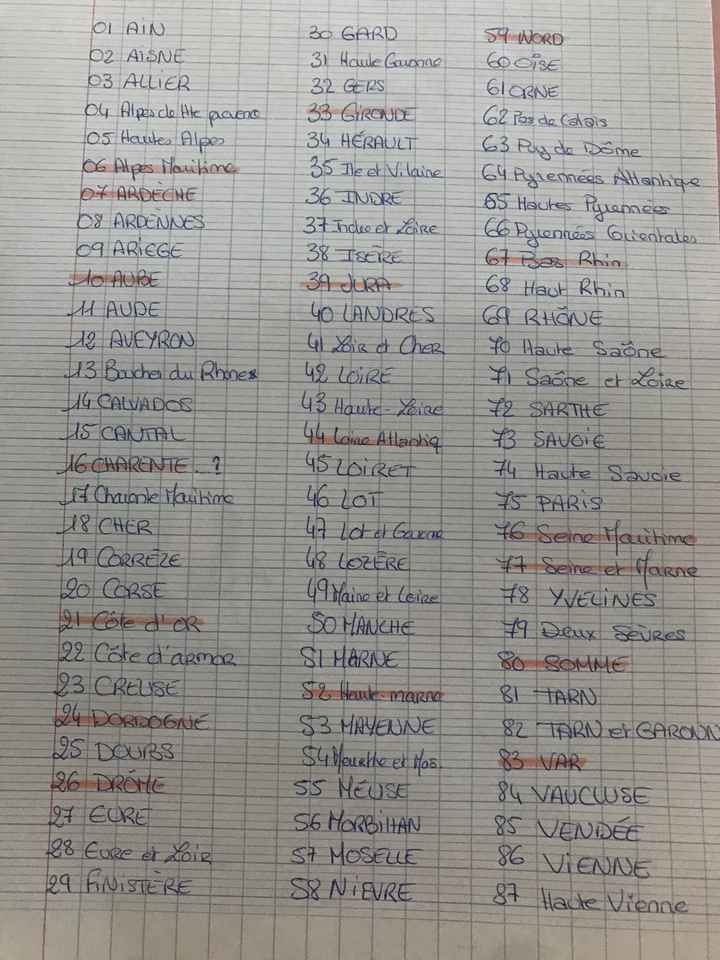 01 AIN
02 AISNE
03 ALLIER
04 Alpes de Hte provence
05 Hautes Alpes
06 Alpes Maritime
07 ARDÈCHE
08 ARDENNES
09 ARIEGE
10 AUBE
11 AUDE
12 AVEYRON
13 Bouches du Rhones
14 CALVADOS
15 CANTAL
16 CHARENTE ?
17 Charente Maritime
18 CHER
19 CORRÈZE
20 CORSE
21 Côte d'OR
22 Côte d'armor
23 CREUSE
24 DORDOGNE
25 DOUBS
26 DRÔME
27 EURE
28 Eure et Loir
29 FINISTÈRE
30 GARD
31 Haute Garonne
32 GERS
33 GIRONDE
34 HÉRAULT
35 Ile et Vilaine
36 INDRE
37 Indre et Loire
38 ISÈRE
39 JURA
40 LANDRES
41 Loir et Cher
42 LOIRE
43 Haute-Loire
44 Loire Atlantiq
45 LOIRET
46 LOT
47 Lot et Garone
48 LOZÈRE
49 Maine et Loire
50 MANCHE
51 MARNE
52 Haute-marne
53 MAYENNE
54 Meurthe et Mos.
55 MEUSE
56 MORBIHAN
57 MOSELLE
58 NIEVRE
59 NORD
60 OISE
61 ORNE
62 Pas de Calais
63 Puy de Dôme
64 Pyrennées Atlantique
65 Hautes Pyrennées
66 Pyrennées Orientales
67 Bas Rhin
68 Haut Rhin
69 RHÔNE
70 Haute Saône
71 Saône et Loire
72 SARTHE
73 SAVOIE
74 Haute Savoie
75 PARIS
76 Seine Maritime
77 Seine et Marne
78 YVELINES
79 Deux SÈVRES
80 SOMME
81 TARN
82 TARN et GARONN
83 VAR
84 VAUCLUSE
85 VENDÉE
86 VIENNE
87 Haute Vienne